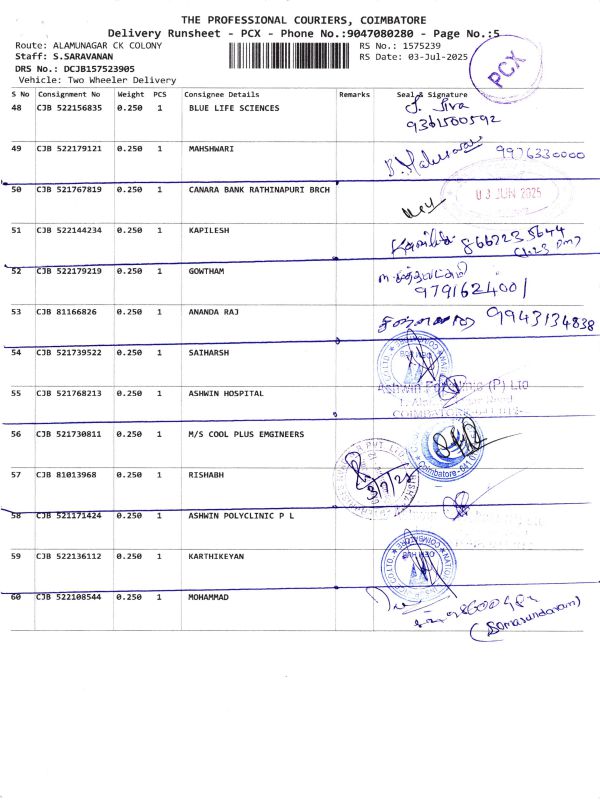 THE PROFESSIONAL COURIERS, COIMBATORE
Delivery Runsheet - PCX - Phone No.:9047080280 - Page No.:5
Route: ALAMUNAGAR CK COLONY
RS No.: 1575239
Staff: S.SARAVANAN
RS Date: 03-Jul-2025
DRS No.: DCJB157523905
Vehicle: Two Wheeler Delivery
PCX
S No Consignment No Weight PCS Consignee Details Remarks Seal & Signature
48 CJB 522156835 0.250 1 BLUE LIFE SCIENCES
J. Siva
9361500592
49 CJB 522179121 0.250 1 MAHSHWARI
9976330000
50 CJB 521767819 0.250 1 CANARA BANK RATHINAPURI BRCH
03 JUN 2025
51 CJB 522144234 0.250 1 KAPILESH
8667235644
52 CJB 522179219 0.250 1 GOWTHAM
9791624001
53 CJB 81166826 0.250 1 ANANDA RAJ
9943134838
54 CJB 521739522 0.250 1 SAIHARSH
55 CJB 521768213 0.250 1 ASHWIN HOSPITAL
Ashwin (P) Ltd
56 CJB 521730811 0.250 1 M/S COOL PLUS EMGINEERS
Coimbatore
57 CJB 81013968 0.250 1 RISHABH
3/7/25
58 CJB 521171424 0.250 1 ASHWIN POLYCLINIC P L
59 CJB 522136112 0.250 1 KARTHIKEYAN
60 CJB 522108544 0.250 1 MOHAMMAD
(Somasundaram)